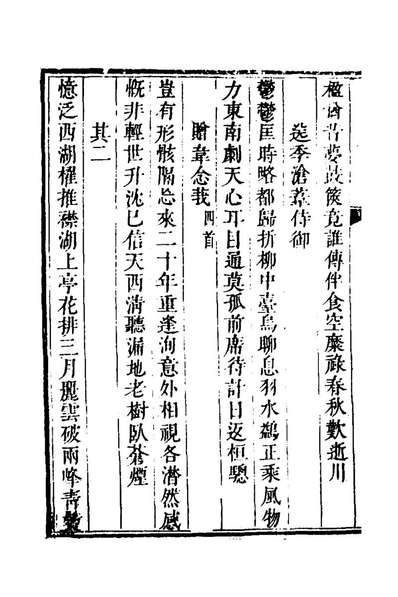 楹奠昔夢故篋竟誰傳伴食空糜祿春秋歎逝川
送季滄葦侍御
鬱鬱匡時略都歸折柳中臺烏聊息羽水鷁正乘風物
力東南劇天心耳目通莫孤前席待計日返桓驄
贈韋念我四首
豈有形骸隔忽來二十年重逢洵意外相視各潸然感
慨非輕世升沈已信天西清聽漏地老樹臥蒼煙
其二
憶泛西湖櫂推襟湖上亭花排三月麗雲破兩峰青鬢